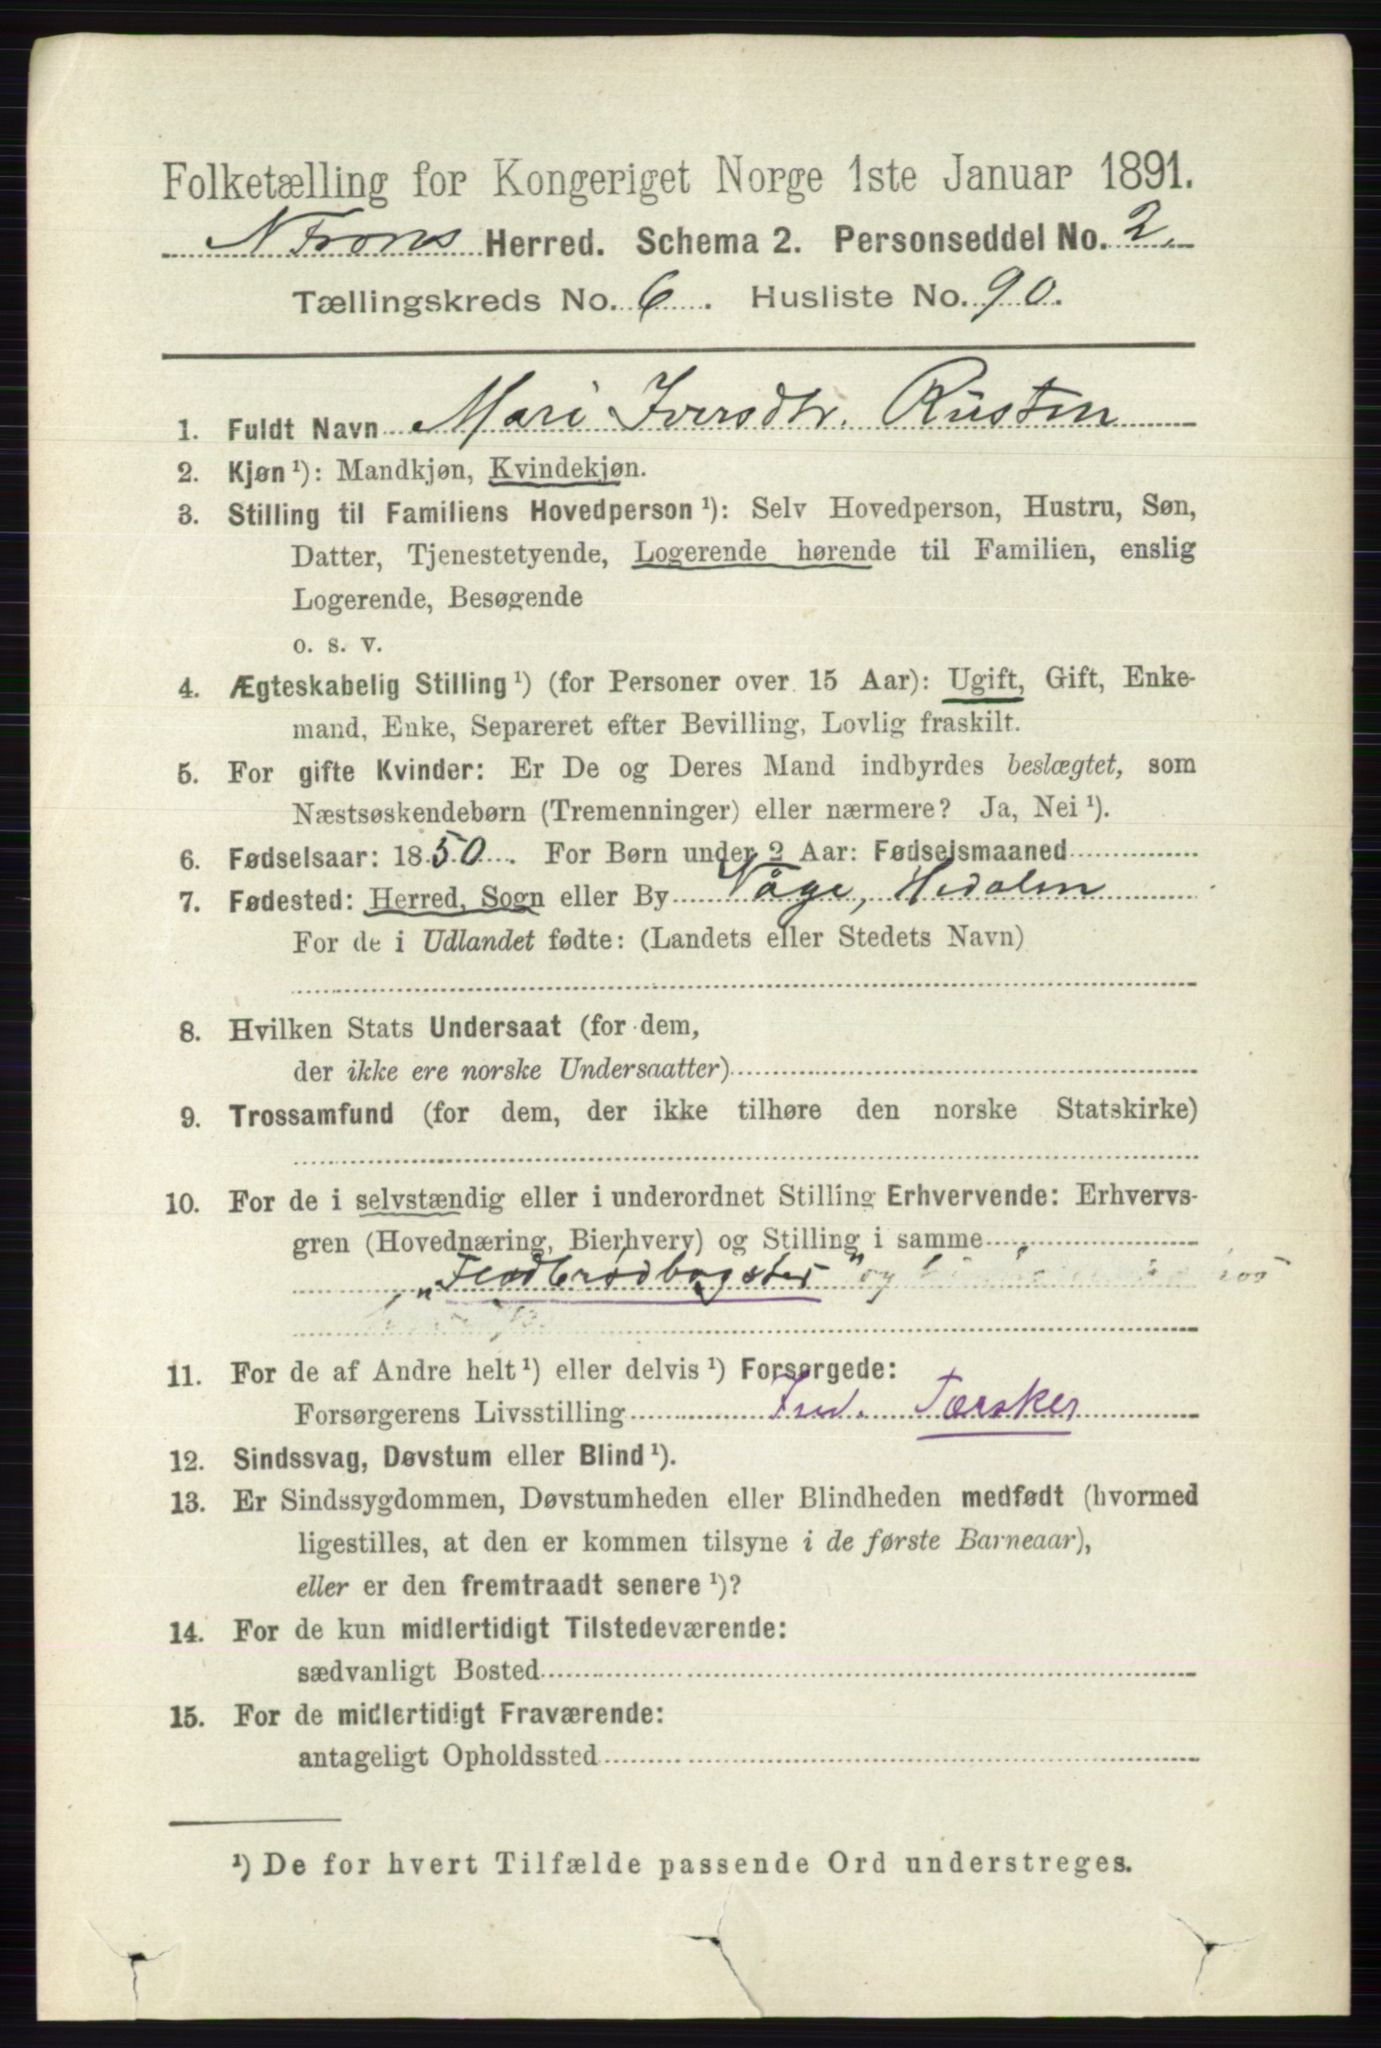 Folketælling for Kongeriget Norge 1ste Januar 1891.
N Frons Herred. Schema 2. Personseddel No. 2.
Tællingskreds No. 6. Husliste No. 90.
1. Fuldt Navn Mari Iversdtr. Rusten
2. Kjøn ¹): Mandkjøn, Kvindekjøn.
3. Stilling til Familiens Hovedperson ¹): Selv Hovedperson, Hustru, Søn,
Datter, Tjenestetyende, Logerende hørende til Familien, enslig
Logerende, Besøgende
o. s. v.
4. Ægteskabelig Stilling ¹) (for Personer over 15 Aar): Ugift, Gift, Enke-
mand, Enke, Separeret efter Bevilling, Lovlig fraskilt.
5. For gifte Kvinder: Er De og Deres Mand indbyrdes beslægtet, som
Næstsøskendebørn (Tremenninger) eller nærmere? Ja, Nei ¹).
6. Fødselsaar: 1850. For Børn under 2 Aar: Fødselsmaaned
7. Fødested: Herred, Sogn eller By Våge, Hedalen
For de i Udlandet fødte: (Landets eller Stedets Navn)
8. Hvilken Stats Undersaat (for dem,
der ikke ere norske Undersaatter)
9. Trossamfund (for dem, der ikke tilhøre den norske Statskirke)
10. For de i selvstændig eller i underordnet Stilling Erhvervende: Erhvervs-
gren (Hovednæring, Bierhverv) og Stilling i samme
„Fladbrødbagster" og
11. For de af Andre helt ¹) eller delvis ¹) Forsørgede:
Forsørgerens Livsstilling Ind. Tærsker
12. Sindssvag, Døvstum eller Blind ¹).
13. Er Sindssygdommen, Døvstumheden eller Blindheden medfødt (hvormed
ligestilles, at den er kommen tilsyne i de første Barneaar),
eller er den fremtraadt senere ¹)?
14. For de kun midlertidigt Tilstedeværende:
sædvanligt Bosted
15. For de midlertidigt Fraværende:
antageligt Opholdssted
¹) De for hvert Tilfælde passende Ord understreges.